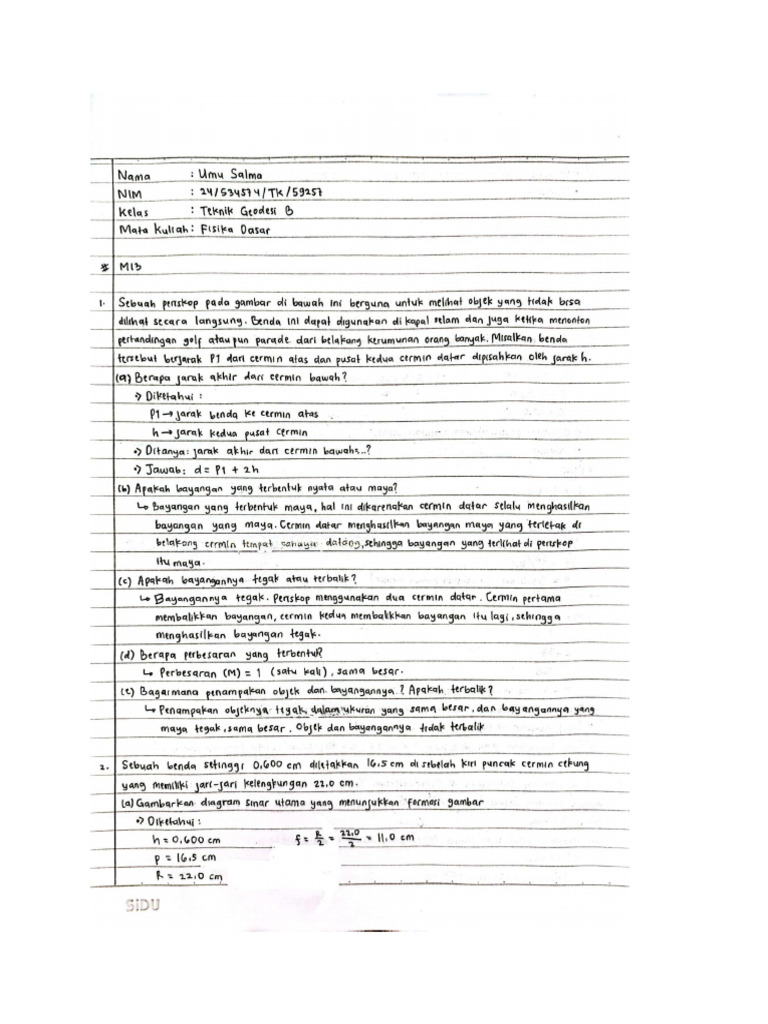 Nama : Umu Salma
NIM : 24/534574/TK/59257
Kelas : Teknik Geodesi B
Mata Kuliah : Fisika Dasar
* M13
1. Sebuah periskop pada gambar di bawah ini berguna untuk melihat objek yang tidak bisa
dilihat secara langsung. Benda ini dapat digunakan di kapal selam dan juga ketika menonton
pertandingan golf ataupun parade dari belakang kerumunan orang banyak. Misalkan benda
tersebut berjarak P1 dari cermin atas dan pusat kedua cermin datar dipisahkan oleh jarak h.
(a) Berapa jarak akhir dari cermin bawah?
→ Diketahui :
P1 → jarak benda ke cermin atas
h → jarak kedua pusat cermin
→ Ditanya : jarak akhir dari cermin bawah=...?
→ Jawab : d = P1 + 2h
(b) Apakah bayangan yang terbentuk nyata atau maya?
↳ Bayangan yang terbentuk maya, hal ini dikarenakan cermin datar selalu menghasilkan
bayangan yang maya. Cermin datar menghasilkan bayangan maya yang terletak di
belakang cermin tempat cahaya datang, sehingga bayangan yang terlihat di periskop
itu maya.
(c) Apakah bayangannya tegak atau terbalik?
↳ Bayangannya tegak. Periskop menggunakan dua cermin datar. Cermin pertama
membalikkan bayangan, cermin kedua membalikkan bayangan itu lagi, sehingga
menghasilkan bayangan tegak.
(d) Berapa perbesaran yang terbentuk?
↳ Perbesaran (M) = 1 (satu kali), sama besar.
(e) Bagaimana penampakan objek dan bayangannya? Apakah terbalik?
↳ Penampakan objeknya tegak, dalam ukuran yang sama besar, dan bayangannya yang
maya tegak, sama besar. Objek dan bayangannya tidak terbalik
2. Sebuah benda setinggi 0,600 cm diletakkan 16,5 cm di sebelah kiri puncak cermin cekung
yang memiliki jari-jari kelengkungan 22,0 cm.
(a) Gambarkan diagram sinar utama yang menunjukkan formasi gambar
→ Diketahui :
h = 0,600 cm f = R/2 = 22,0/2 = 11,0 cm
p = 16,5 cm
R = 22,0 cm
SiDU